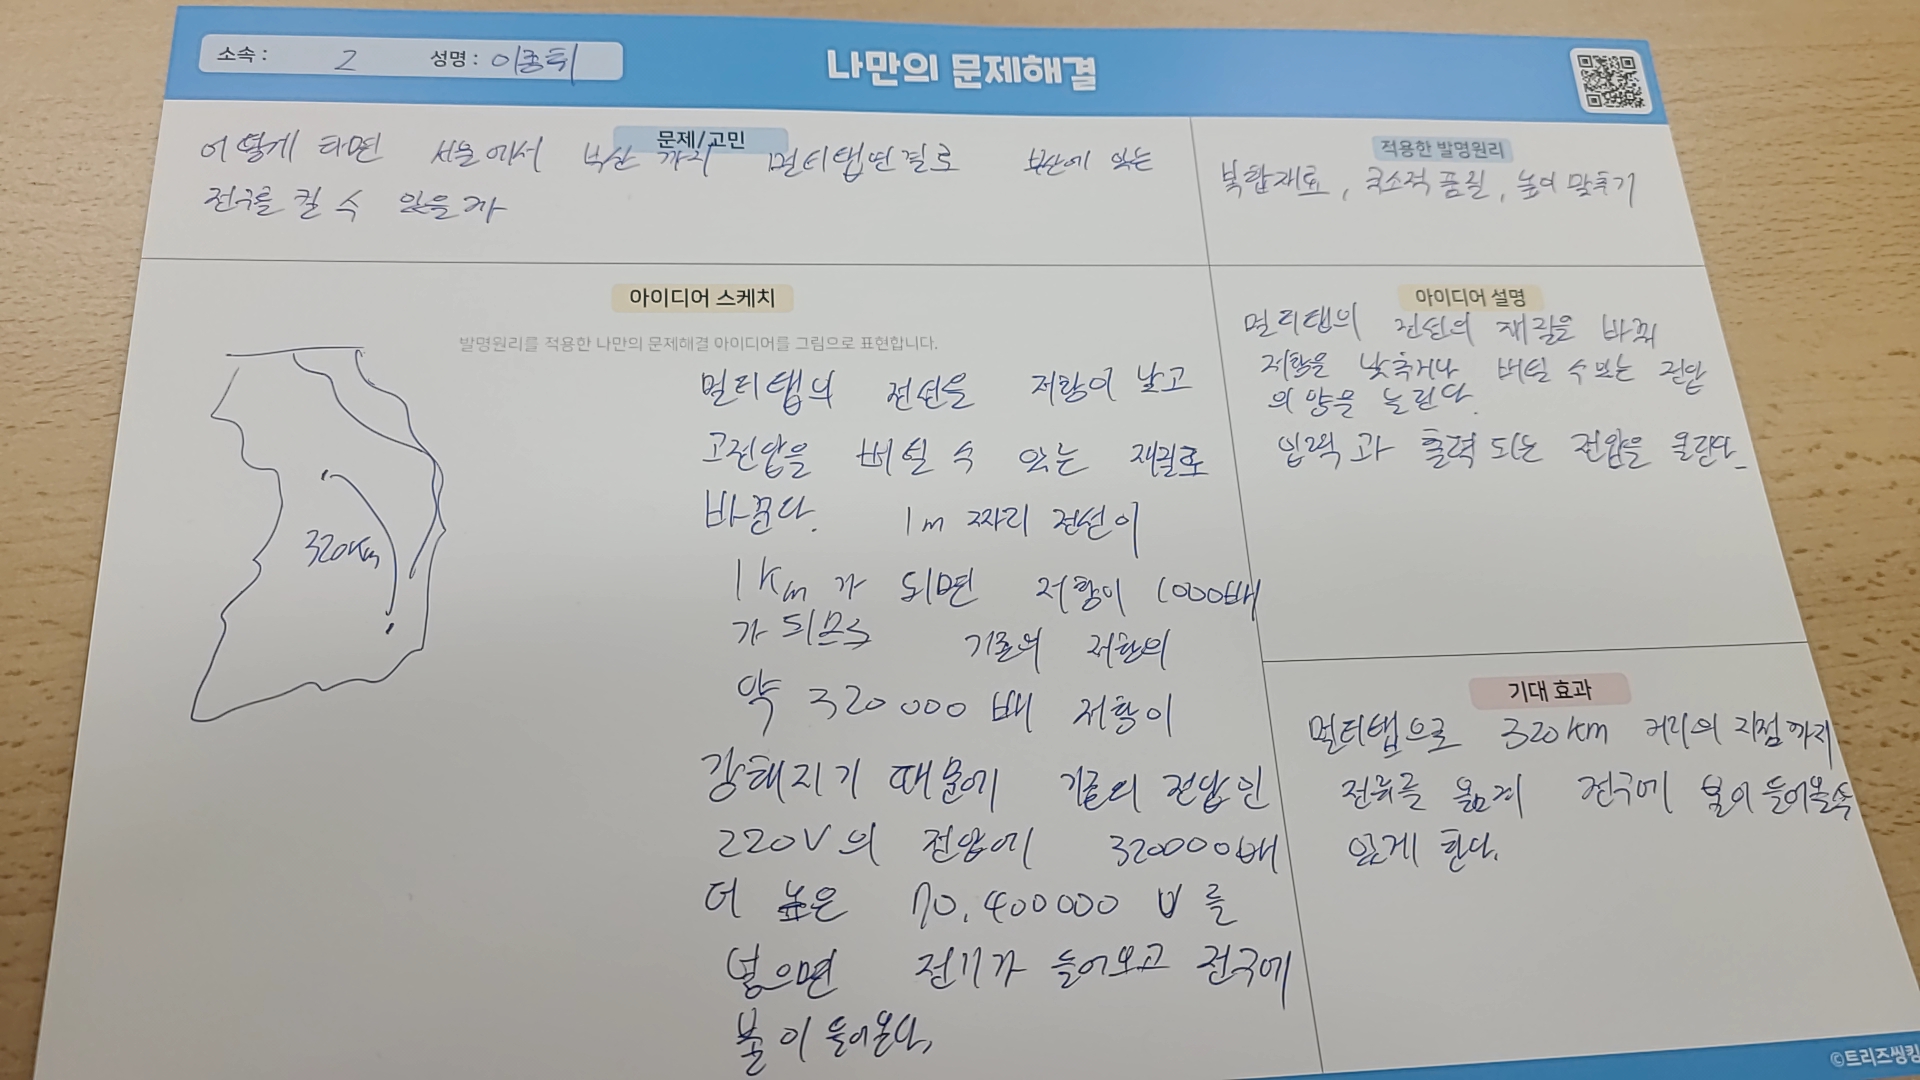 소속 : 2 성명 : 이종휘
나만의 문제해결
문제/고민
어떻게 하면 서울에서 부산까지 멀티탭연결로 부산에 있는
전구를 킬 수 있을까
적용한 발명원리
복합재료, 국소적 품질, 높이 맞추기
아이디어 스케치
발명원리를 적용한 나만의 문제해결 아이디어를 그림으로 표현합니다.
320km
멀티탭의 전선을 저항이 낮고
고전압을 버틸 수 있는 재질로
바꾼다. 1m 짜리 전선이
1km가 되면 저항이 1000배
가 되므로 기존의 저항의
약 320000배 저항이
강해지기 때문에 기존의 전압인
220V의 전압에 320000배
더 높은 70,400000 V를
넣으면 전기가 들어오고 전구에
불이 들어온다,
아이디어 설명
멀티탭의 전선의 재질을 바꿔
저항을 낮추거나 버틸 수 있는 전압
의 양을 늘린다.
입력과 출력되는 전압을 올린다.
기대 효과
멀티탭으로 320km 거리의 지점까지
전류를 옮겨 전구에 불이 들어올수
있게 한다.
©트리즈씽킹